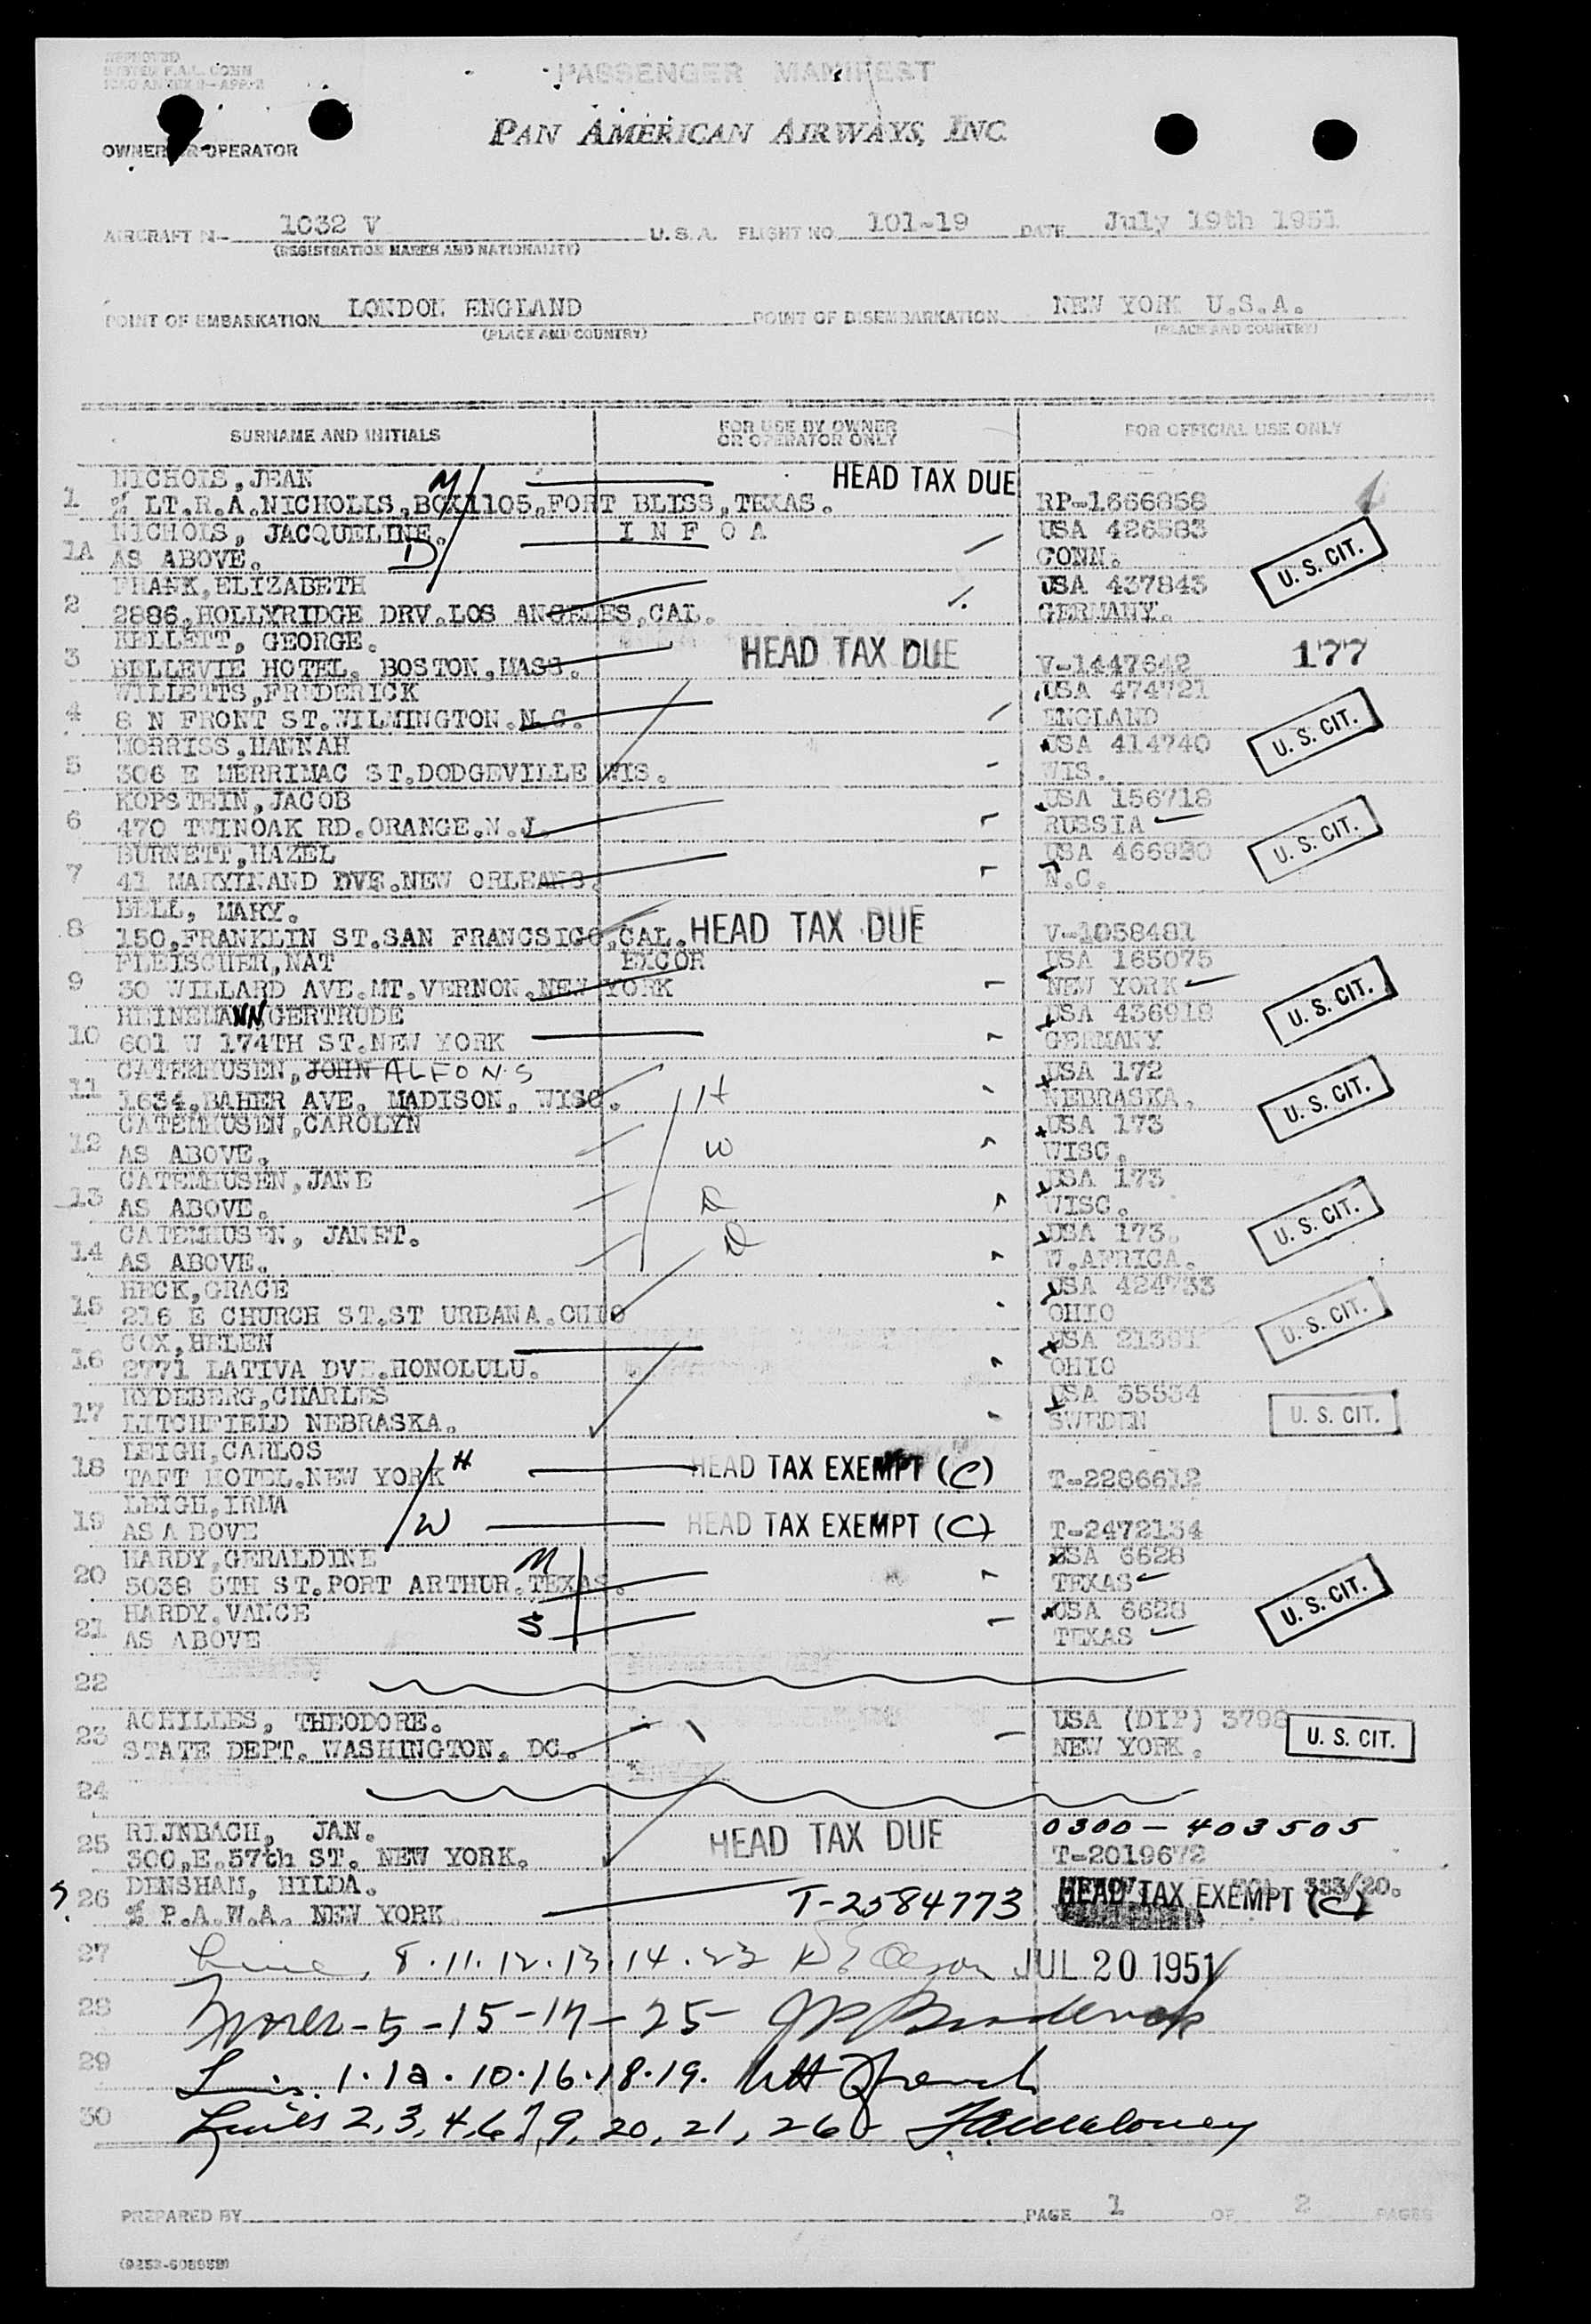 APPROVED
PASSENGER MANIFEST
PAN AMERICAN AIRWAYS, INC
OWNER OR OPERATOR
AIRCRAFT N- 1032 V U.S.A. FLIGHT NO. 101-19 DATE July 19th 1951
(REGISTRATION MARKS AND NATIONALITY)
POINT OF EMBARKATION LONDON ENGLAND POINT OF DISEMBARKATION NEW YORK U.S.A.
(PLACE AND COUNTRY) (PLACE AND COUNTRY)
SURNAME AND INITIALS FOR USE BY OWNER OR OPERATOR ONLY FOR OFFICIAL USE ONLY
NICHOLS, JEAN M HEAD TAX DUE
1 % LT.R.A.NICHOLLS,BOX1105,FORT BLISS,TEXAS. RP-1666858
NICHOLS, JACQUELINE. I N F O A USA 426583
1A AS ABOVE. D CONN. U. S. CIT.
FRANK,ELIZABETH USA 437843
2 2886,HOLLYRIDGE DRV.LOS ANGELES,CAL. GERMANY.
KELLETT, GEORGE. HEAD TAX DUE 177
3 BELLEVIE HOTEL, BOSTON,MASS. V-1447642
WILLETTS,FREDERICK USA 474721
4 8 N FRONT ST.WILMINGTON.N.C. ENGLAND U. S. CIT.
MORRISS,HANNAH USA 414740
5 306 E MERRIMAC ST.DODGEVILLE WIS. WIS.
KOPSTEIN,JACOB USA 156718
6 470 TWINOAK RD.ORANGE.N.J. RUSSIA U. S. CIT.
BURNETT,HAZEL USA 466930
7 41 MARYINAND DVE.NEW ORLEANS. N.C.
BELL, MARY. HEAD TAX DUE
8 150,FRANKLIN ST.SAN FRANCSIGO,CAL. V-1058481
FLEISCHER,NAT EXCOR USA 165075
9 30 WILLARD AVE.MT.VERNON.NEW YORK NEW YORK
HEINEMANN,GERTRUDE USA 436918 U. S. CIT.
10 601 W 174TH ST.NEW YORK GERMANY
CATENHUSEN,JOHN ALFONS USA 172
11 1634,BAHER AVE. MADISON, WISC. H NEBRASKA. U. S. CIT.
CATENHUSEN,CAROLYN USA 173
12 AS ABOVE. W WISC.
CATENHUSEN,JANE USA 173
13 AS ABOVE. D WISC. U. S. CIT.
CATENHUSEN, JANET. D USA 173.
14 AS ABOVE. W.AFRICA.
HECK,GRACE USA 424733
15 216 E CHURCH ST.ST URBANA.OHIO OHIO U. S. CIT.
COX,HELEN USA 21391
16 2771 LATIVA DVE.HONOLULU. OHIO
RYDEBERG,CHARLES USA 35534
17 LITCHFIELD NEBRASKA. SWEDEN U. S. CIT.
LEIGH,CARLOS H
18 TAFT HOTEL.NEW YORK HEAD TAX EXEMPT (C) T-2286612
LEIGH,IRMA
19 AS A BOVE W HEAD TAX EXEMPT (C) T-2472134
HARDY,GERALDINE M USA 6628
20 5038 5TH ST.PORT ARTHUR.TEXAS. TEXAS
HARDY,VANCE S USA 6628 U. S. CIT.
21 AS ABOVE TEXAS
22
ACHILLES, THEODORE. USA (DIP) 3798
23 STATE DEPT. WASHINGTON. DC. NEW YORK. U. S. CIT.
24
RIJNBACH, JAN. HEAD TAX DUE 0300-403505
25 300,E.57th ST. NEW YORK. T-2019672
DENSHAM, HILDA. 333/20.
26 % P.A.W.A. NEW YORK T-2584773 HEAD TAX EXEMPT (C)
27 8.11.12.13.14.23 JUL 20 1951
28 5-15-17-25-
29 1.1a.10.16.18.19.
30 Lines 2,3,4,6,7,9,20,21,26
PREPARED BY PAGE 1 OF 2 PAGES